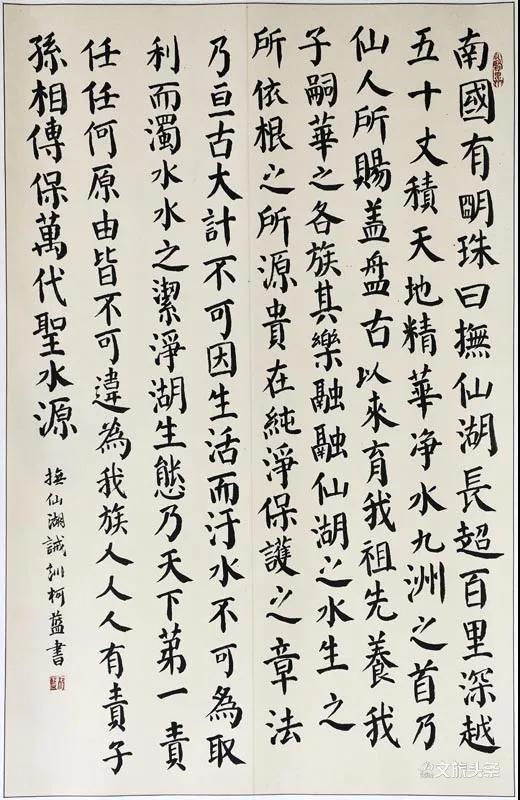 南國有明珠曰撫仙湖長超百里深越
五十丈積天地精華净水九洲之首乃
仙人所賜盖盤古以來育我祖先養我
子嗣華之各族其樂融融仙湖之水生之
所依根之所源貴在純淨保護之章法
乃亘古大計不可因生活而汙水不可為取
利而濁水水之潔淨湖生態乃天下第一責
任任何原由皆不可違為我族人人人有責子
孫相傳保萬代聖水源
撫仙湖誡訓柯藍書
文旅头条